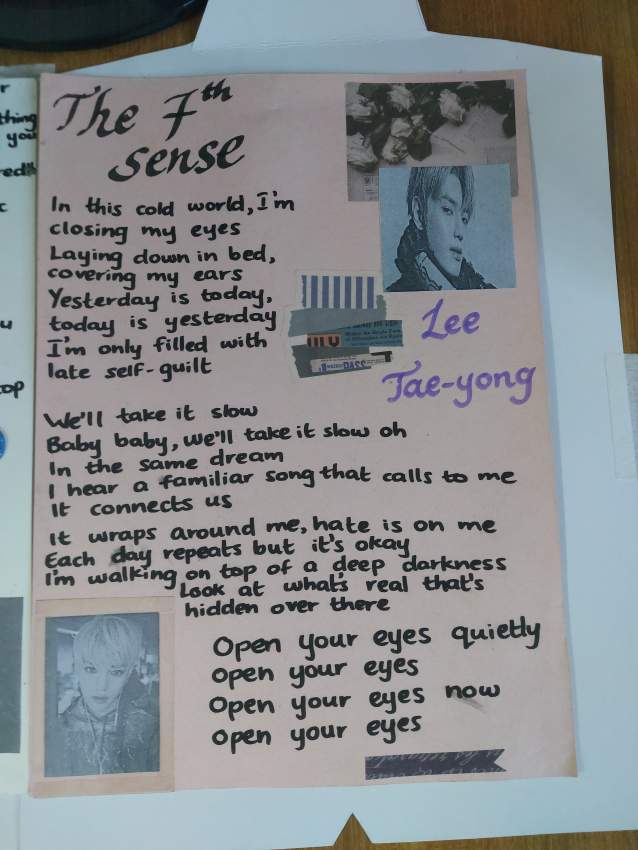 The 7th
sense
In this cold world, I'm
closing my eyes
Laying down in bed,
covering my ears
Yesterday is today,
today is yesterday
I'm only filled with
late self-guilt
Lee
Tae-yong
We'll take it slow
Baby baby, we'll take it slow oh
In the same dream
I hear a familiar song that calls to me
It connects us
It wraps around me, hate is on me
Each day repeats but it's okay
I'm walking on top of a deep darkness
Look at what's real that's
hidden over there
Open your eyes quietly
Open your eyes
Open your eyes now
Open your eyes